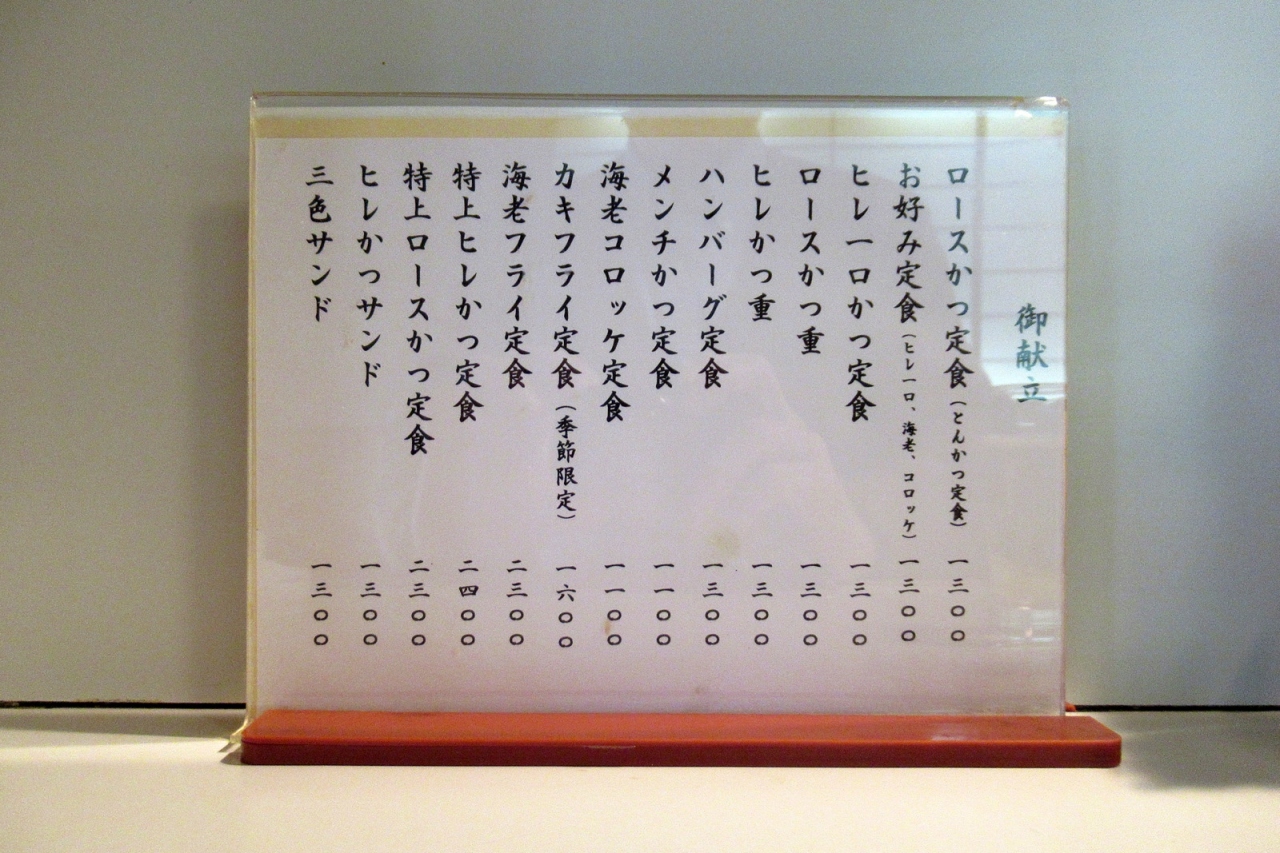 御献立
ロースかつ定食（とんかつ定食）一三〇〇
お好み定食（ヒレ一口、海老、コロッケ）一三〇〇
ヒレ一口かつ定食 一三〇〇
ロースかつ重 一三〇〇
ヒレかつ重 一三〇〇
ハンバーグ定食 一三〇〇
メンチかつ定食 一一〇〇
海老コロッケ定食 一一〇〇
カキフライ定食（季節限定）一六〇〇
海老フライ定食 二三〇〇
特上ヒレかつ定食 二四〇〇
特上ロースかつ定食 二三〇〇
ヒレかつサンド 一三〇〇
三色サンド 一三〇〇